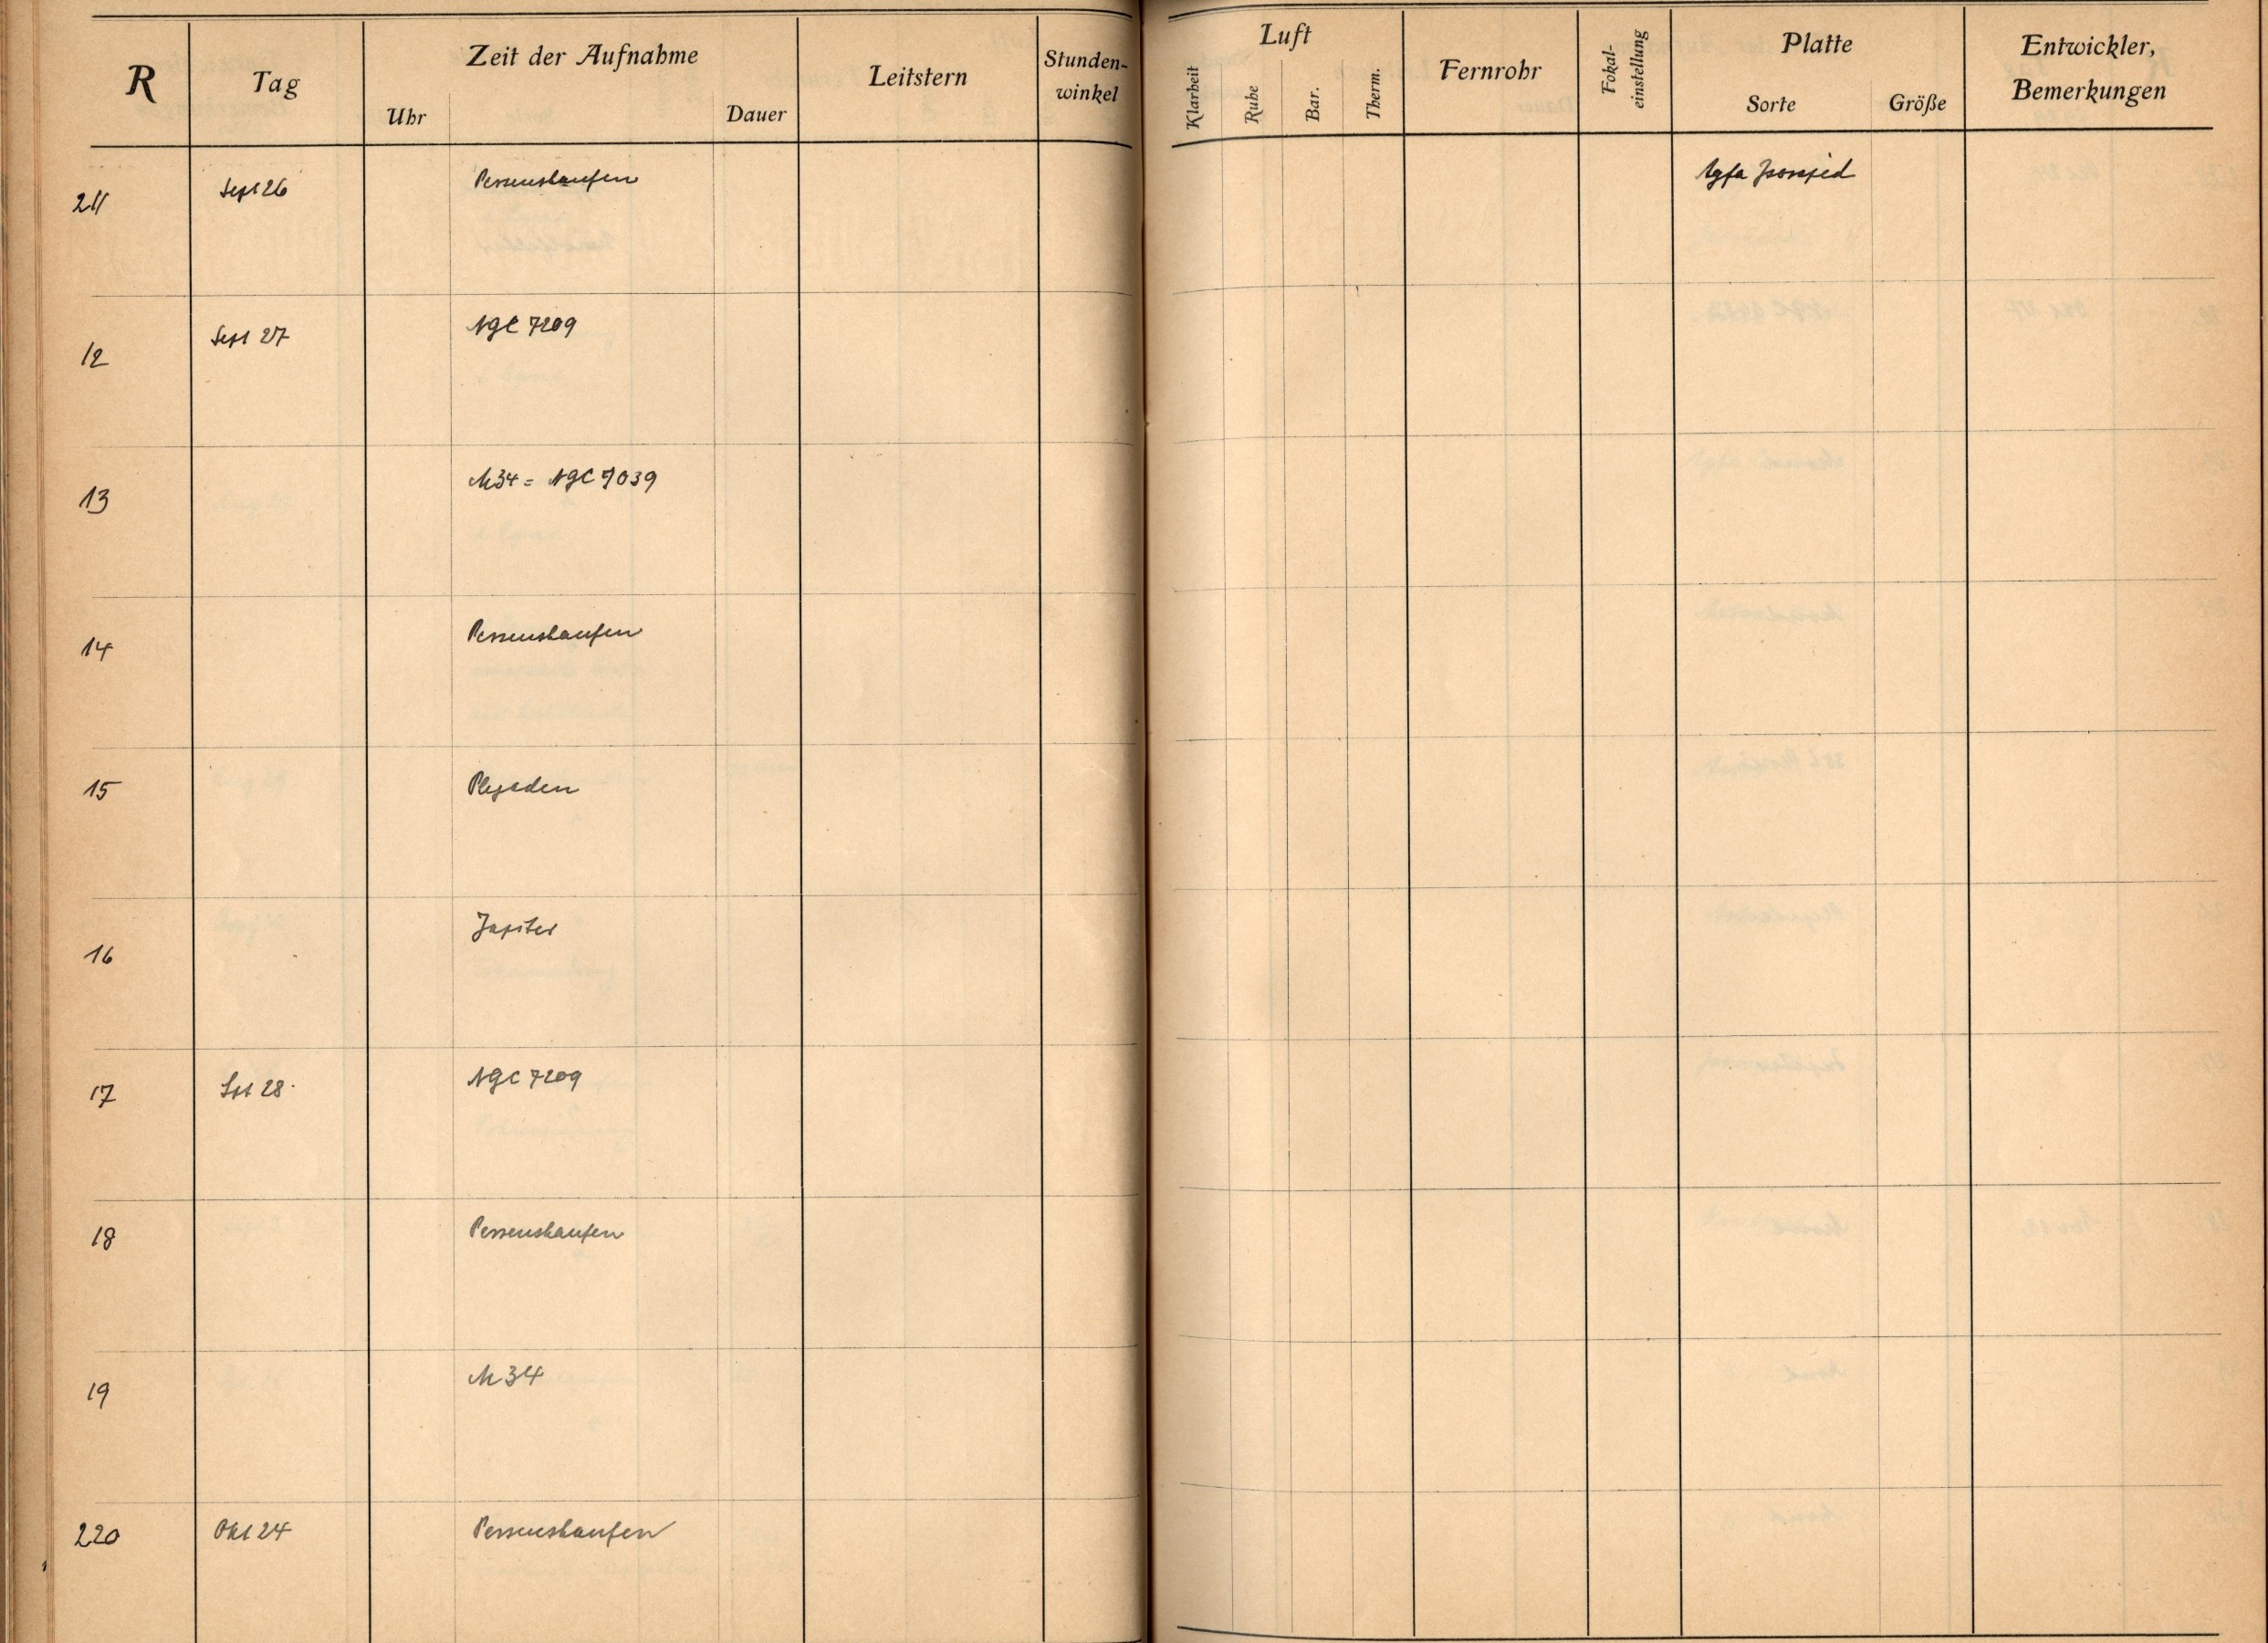 R Tag Zeit der Aufnahme Leitstern Stunden-winkel Luft Fernrohr Fokal-einstellung Platte Entwickler, Bemerkungen
Uhr Dauer Klarheit Ruhe Bar. Therm. Sorte Größe
211 Sept 26 Perseushaufen Agfa
12 Sept 27 NGC 7209
13 M34 = NGC 1039
14 Perseushaufen
15 Plejaden
16 Jupiter
17 Spt 28. NGC 7209
18 Perseushaufen
19 M 34
220 Okt 24 Perseushaufen